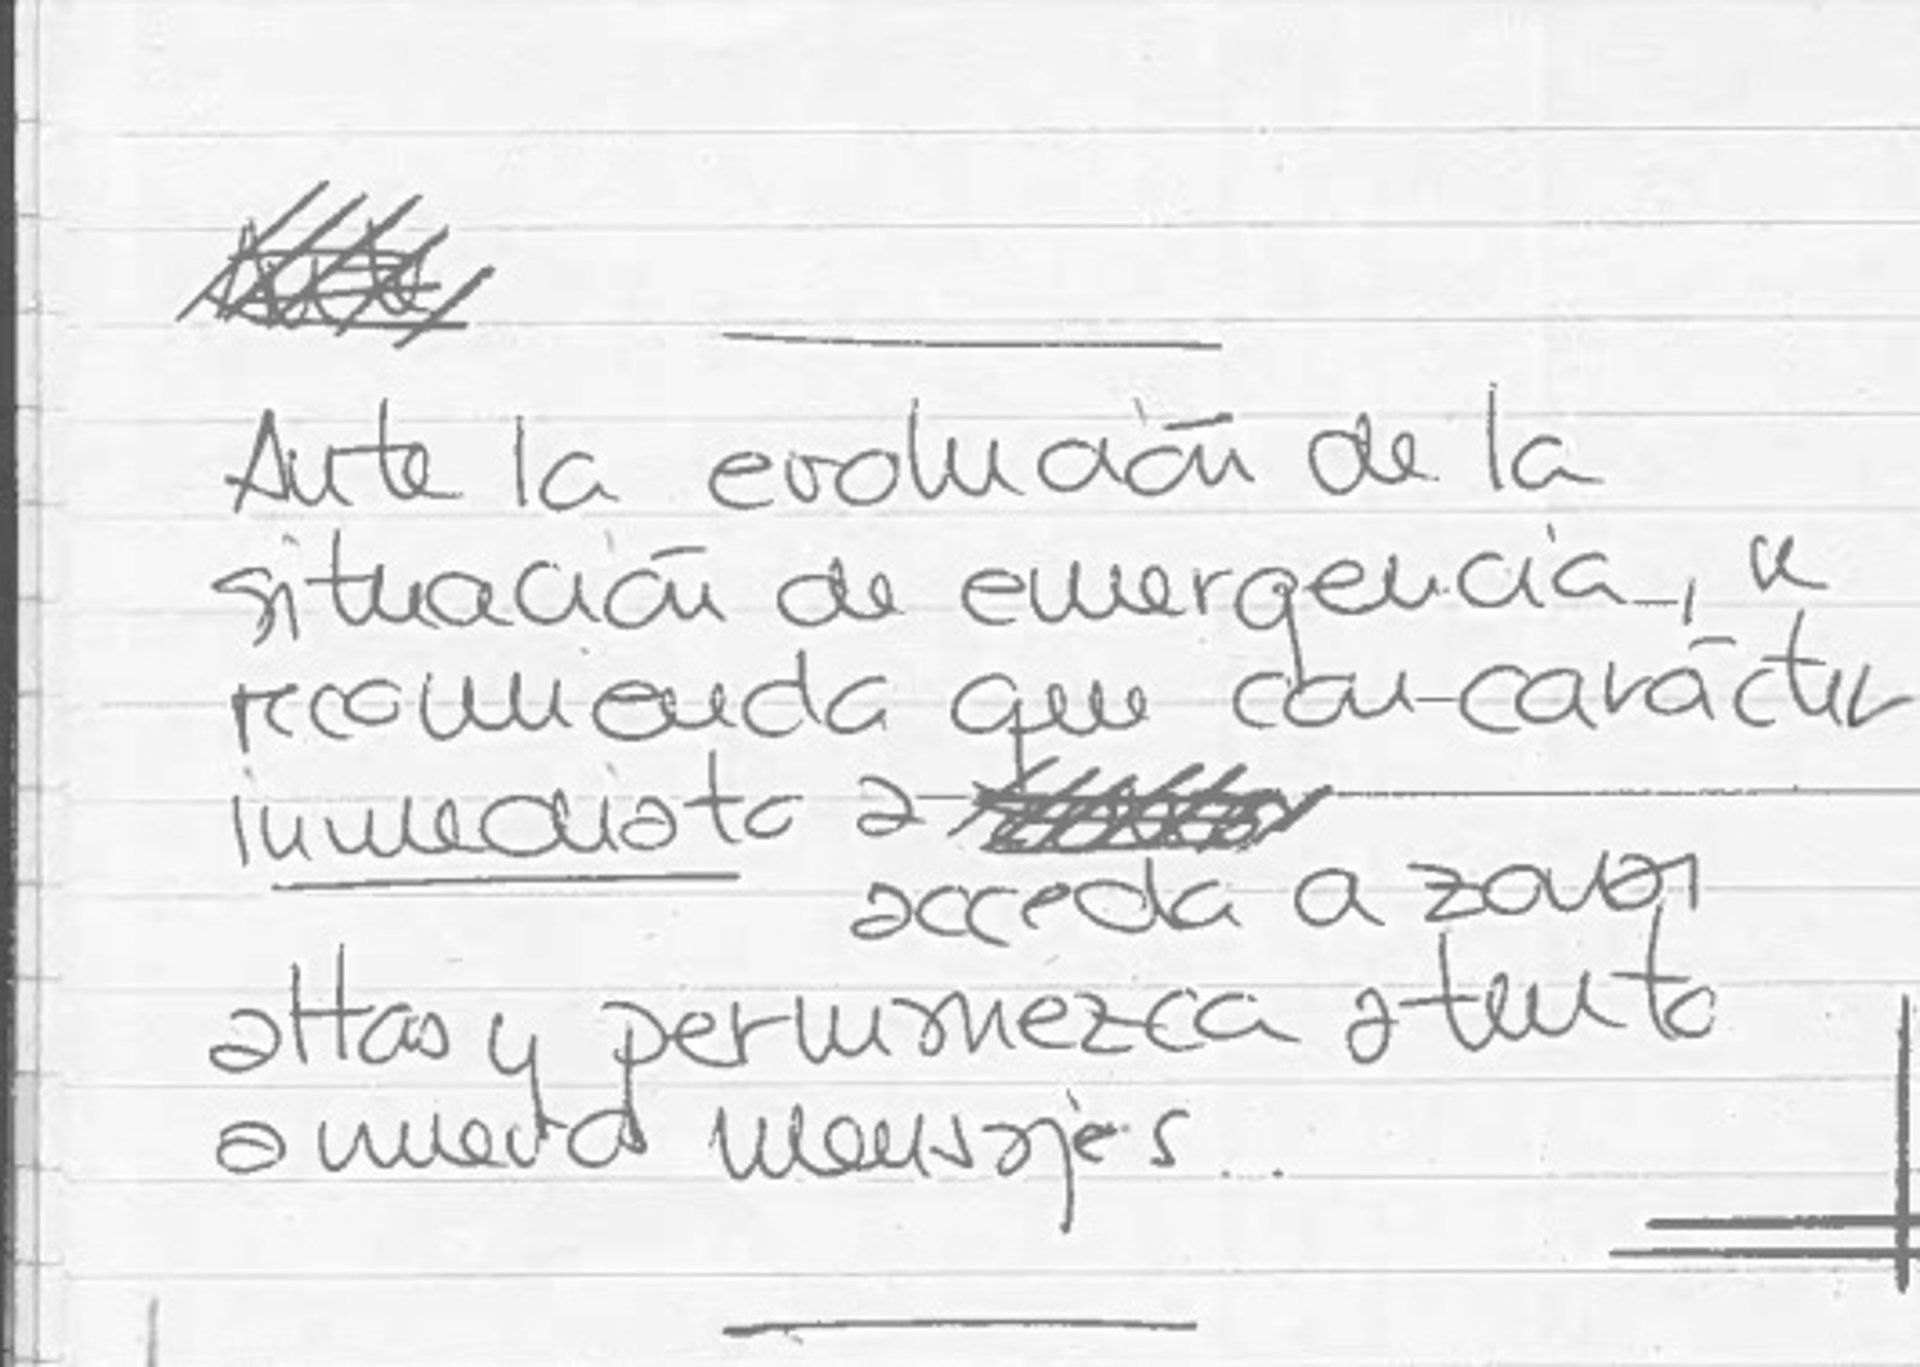 Ante la evolución de la
situación de emergencia, se
recomienda que con carácter
inmediato a
acceda a zonas
altas y permanezca atento
a nuevos mensajes...